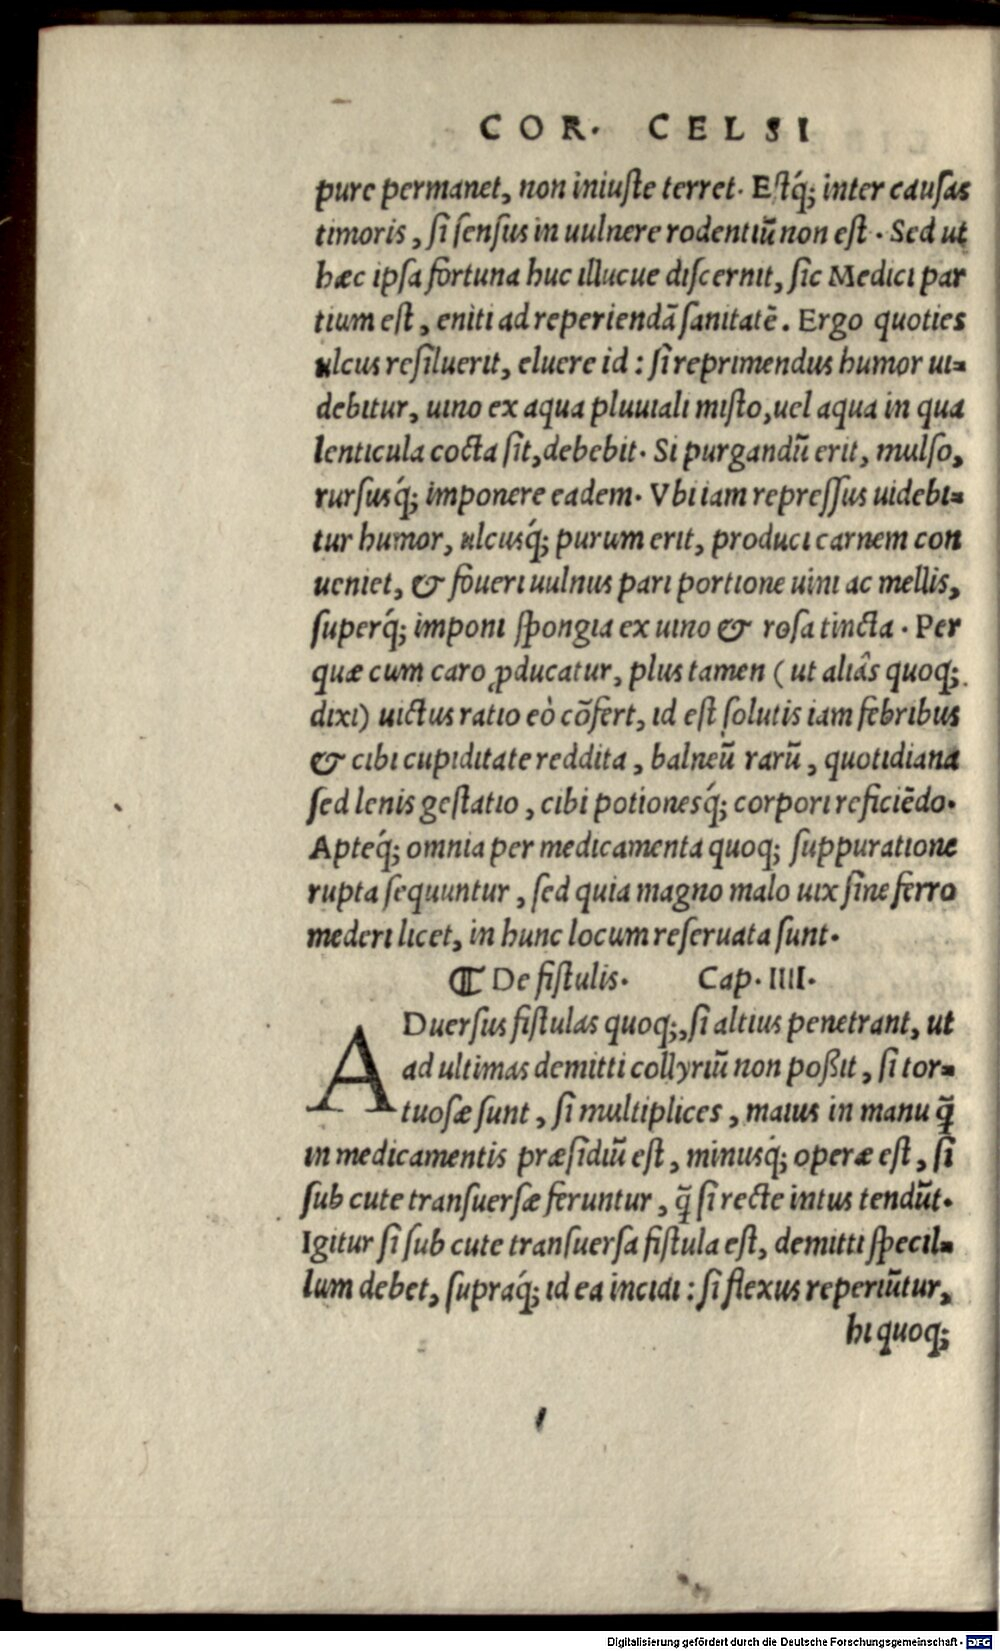 COR. CELSI
pure permanet, non iniuſte terret. Eſtq́; inter cauſas
timoris, ſi ſenſus in uulnere rodentiũ non eſt. Sed ut
hæc ipſa fortuna huc illucue diſcernit, ſic Medici par
tium eſt, eniti ad reperiendã ſanitatẽ. Ergo quoties
ulcus reſiluerit, eluere id: ſi reprimendus humor ui-
debitur, uino ex aqua pluuiali miſto, uel aqua in qua
lenticula cocta ſit, debebit. Si purgandũ erit, mulſo,
rurſusq́; imponere eadem. Vbi iam repreſſus uidebi-
tur humor, ulcusq́; purum erit, produci carnem con
ueniet, & foueri uulnus pari portione uini ac mellis,
superq́; imponi ſpongia ex uino & roſa tincta. Per
quæ cum caro ꝓducatur, plus tamen (ut aliâs quoq;
dixi) uictus ratio eò cõfert, id eſt ſolutis iam febribus
& cibi cupiditate reddita, balneũ rarũ, quotidiana
ſed lenis geſtatio, cibi potionesq́; corpori reficiẽdo.
Apteq́; omnia per medicamenta quoq; ſuppuratione
rupta ſequuntur, ſed quia magno malo uix ſine ferro
mederi licet, in hunc locum reſeruata ſunt.
¶ De fiſtulis. Cap. IIII.
ADuerſus fiſtulas quoq;, ſi altius penetrant, ut
ad ultimas demitti collyriũ non poßit, ſi tor-
tuoſæ ſunt, ſi multiplices, maius in manu q̃
in medicamentis præſidiũ eſt, minusq́; operæ eſt, ſi
ſub cute tranſuerſæ feruntur, q̃ ſi recte intus tendũt.
Igitur ſi ſub cute tranſuerſa fiſtula eſt, demitti ſpecil-
lum debet, ſupraq́; id ea incidi: ſi flexus reperiũtur,
hi quoq;
Digitalisierung gefördert durch die Deutsche Forschungsgemeinschaft - DFG